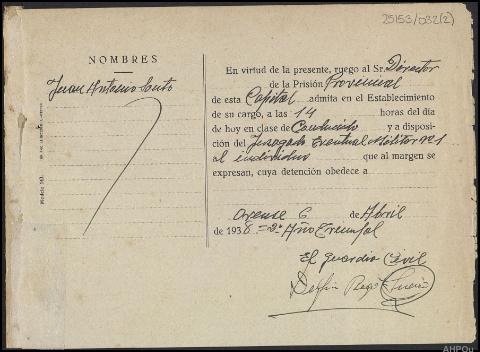 25153/032(2)
NOMBRES
Juan Antonio Couto
En virtud de la presente, ruego al Sr. Director
de la Prisión Provincial
de esta Capital admita en el Establecimiento
de su cargo, a las 14 horas del día
de hoy en clase de Conducido y a disposi-
ción del Juzgado Eventual Militar nº 1
al individuo que al margen se
expresan, cuya detención obedece a
Orense 6 de Abril
de 1938 = 2º Año Triunfal
El guardia Civil
Delfín
Modelo
AHPOu